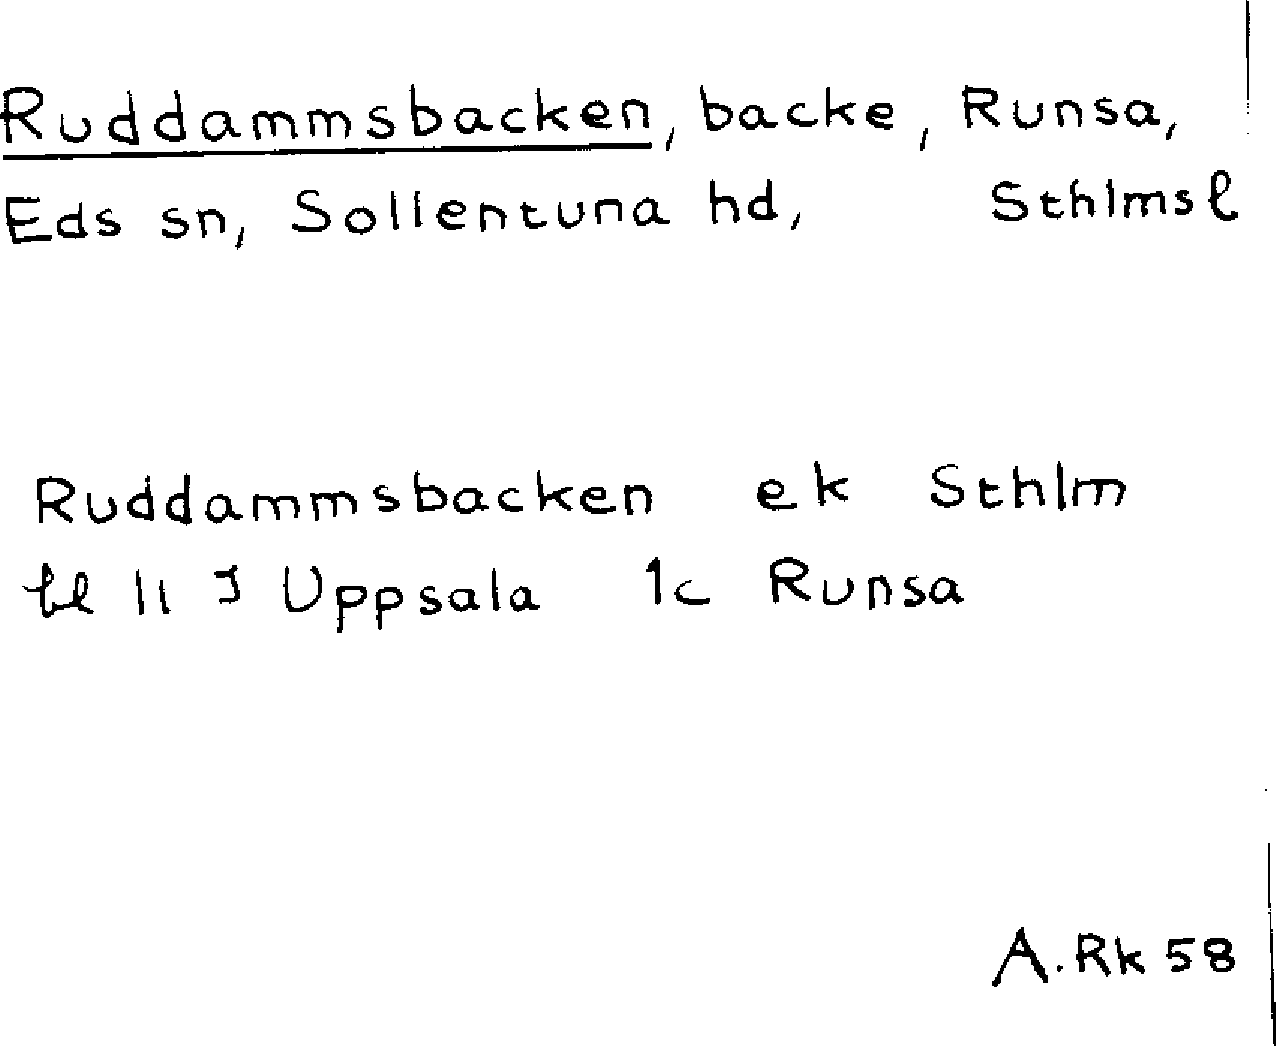 Ruddammsbacken, backe, Runsa,
Eds sn, Sollentuna hd, Sthlmsl
Ruddammsbacken ek Sthlm
bl 11 J Uppsala 1c Runsa
A.Rk 58